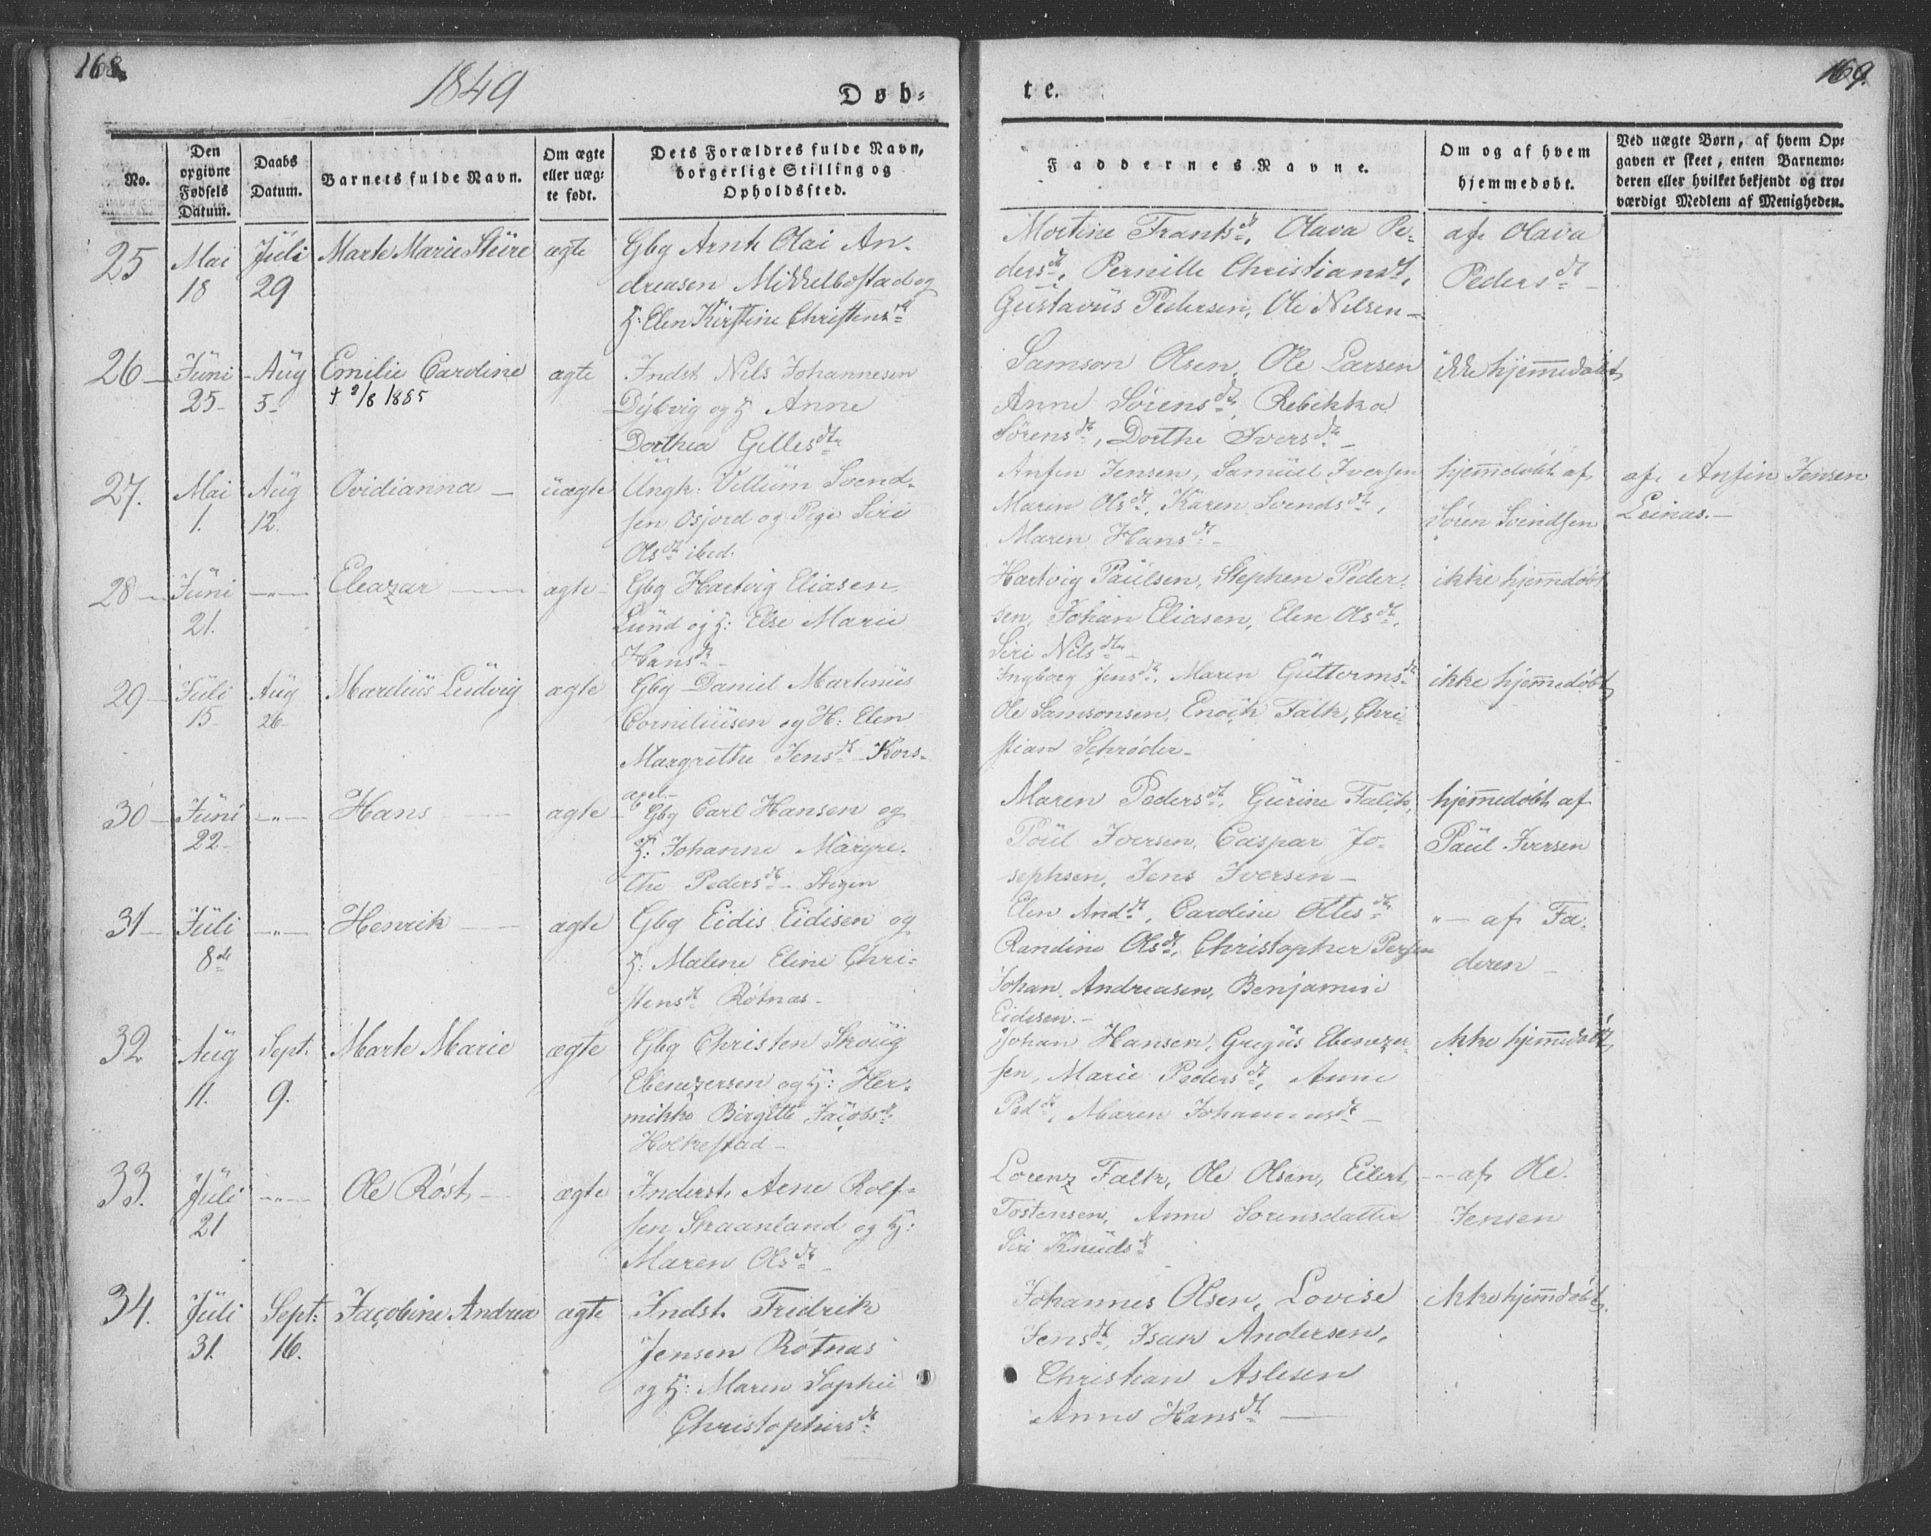 168.
1849
Døb-
te.
169.
No.
Den opgivne Fødsels Datum.
Daabs Datum.
Barnets fulde Navn.
Om ægte eller uæg- te født.
Dets Forældres fulde Navn, borgerlige Stilling og Opholdssted.
Faddernes Navne.
Om og af hvem hjemmedøbt.
Ved uægte Børn, af hvem Op- gaven er skeet, enten Barnemo- deren eller hvilket bekjendt og tro- værdigt Medlem af Menigheden.
25
Mai 18
Juli 29
Marte Marie Sture
ægte
Gbg Arnt Olai An-
dreasen Mikkelbostad og
H: Elen Kirstine Christensdt
Mortine Frantsdt, Olava Pe-
dersdt, Pernille Christiansdt,
Gustavus Pedersen, Ole Nilsen -
af Olava
Pedersdt -
26 -
Juni 25 -
Aug 5 -
Emilie Caroline
† 2/8 1885
ægte
Indst Nils Johannesen
Dybvig og H Anne
Dorthea Gillesdtr
Samson Olsen, Ole Larsen
Anne Sørensdtr, Rebikka
Sørensdt, Dorthe Iversdtr -
ikke hjemmedøbt
27.
Mai 1.
Aug 12.
Ovidianna -
uægte
Ungk: Villum Svend-
sen Osjord og Pige Siri
Olsdt ibed.
Anfin Jensen, Samuel Iversen
Marin Olsdt, Karen Svendsdt,
Maren Hansdt -
hjemmedøbt af
Søren Svindsen
af Anfin Jensen
Leinas. -
28 -
Juni 21.
-"-
Eleazar -
ægte -
Gbg Hartvig Eliasen
Lund og H: Else Marie
Hansdt -
Hartvig Paulsen, Stephen Peder-
sen, Johan Eliasen, Elen Olsdt,
Siri Nilsdtr -
ikke hjemmdøbt
29 -
Juli 15 -
Aug 26 -
Mardius Ludvig
ægte
Gbg Daniel Martinus
Corneliusen og H: Elen
Margrethe Jensdt Kors-
Ingborg Jensdt, Maren Guttormsdt
Ole Samsonsen, Enock Falk, Chri-
stian Schrøder -
ikke hjemmedøbt
30 -
Juni 22 -
-"-
Hans -
ægte -
Gbg Carl Hansen og
H: Johanne Margre-
the Pedersdt - Steien
Maren Pedersdt, Gurine Falck,
Poul Iversen, Caspar Jo-
sephsen, Jens Iversen -
hjemmedøbt af
Paul Iversen
31 -
Juli 8de
-"-
Henrik -
ægte
Gbg Eidis Eidisen og
H: Malene Eline Chri-
stensdt Røtnas -
Elen Anddt, Caroline Ottesdtr
Randine Olsdt, Christopher Persen
Johan Andreasen, Benjamin
Eidisen. -
"- af Fa-
deren -
32
Aug 11.
Sept. 9.
Marte Marie
ægte
Gbg Christen Skoug
Ebenezersen og H: Her-
mikke Birgitte Jacobsdt
Holkestad -
Johan Hansen, Gregus Ebenezer-
sen, Marie Pedersdt, Anne
Peddt, Maren Johannesdt -
ikke hjemmedøbt
33.
Juli 21
-"-
Ole Røst -
ægte
Inderst. Arne Rolf-
sen Skaanland og H:
Maren Olsdtr -
Lorenz Falk, Ole Olsen, Eilert
Tostensen, Anne Sorensdatter
Siri Knudsdt
-- af Ole
Jensen
34.
Juli 31.
Sept: 16.
Jacobine Andrea
ægte
Indst. Fridrik
Jensen Røtnas
og H: Maren Sophie
Christophersdt
Johannes Olsen, Lovise
Jensdt, Isak Andersen,
Christian Aslesen
Anne Hansdt -
ikke hjemmdøbt